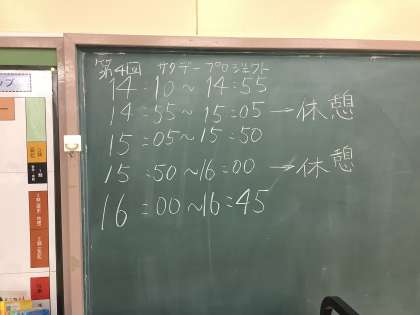 第4回 サタデープロジェクト
14:10～14:55
14:55～15:05→休憩
15:05～15:50
15:50～16:00→休憩
16:00～16:45